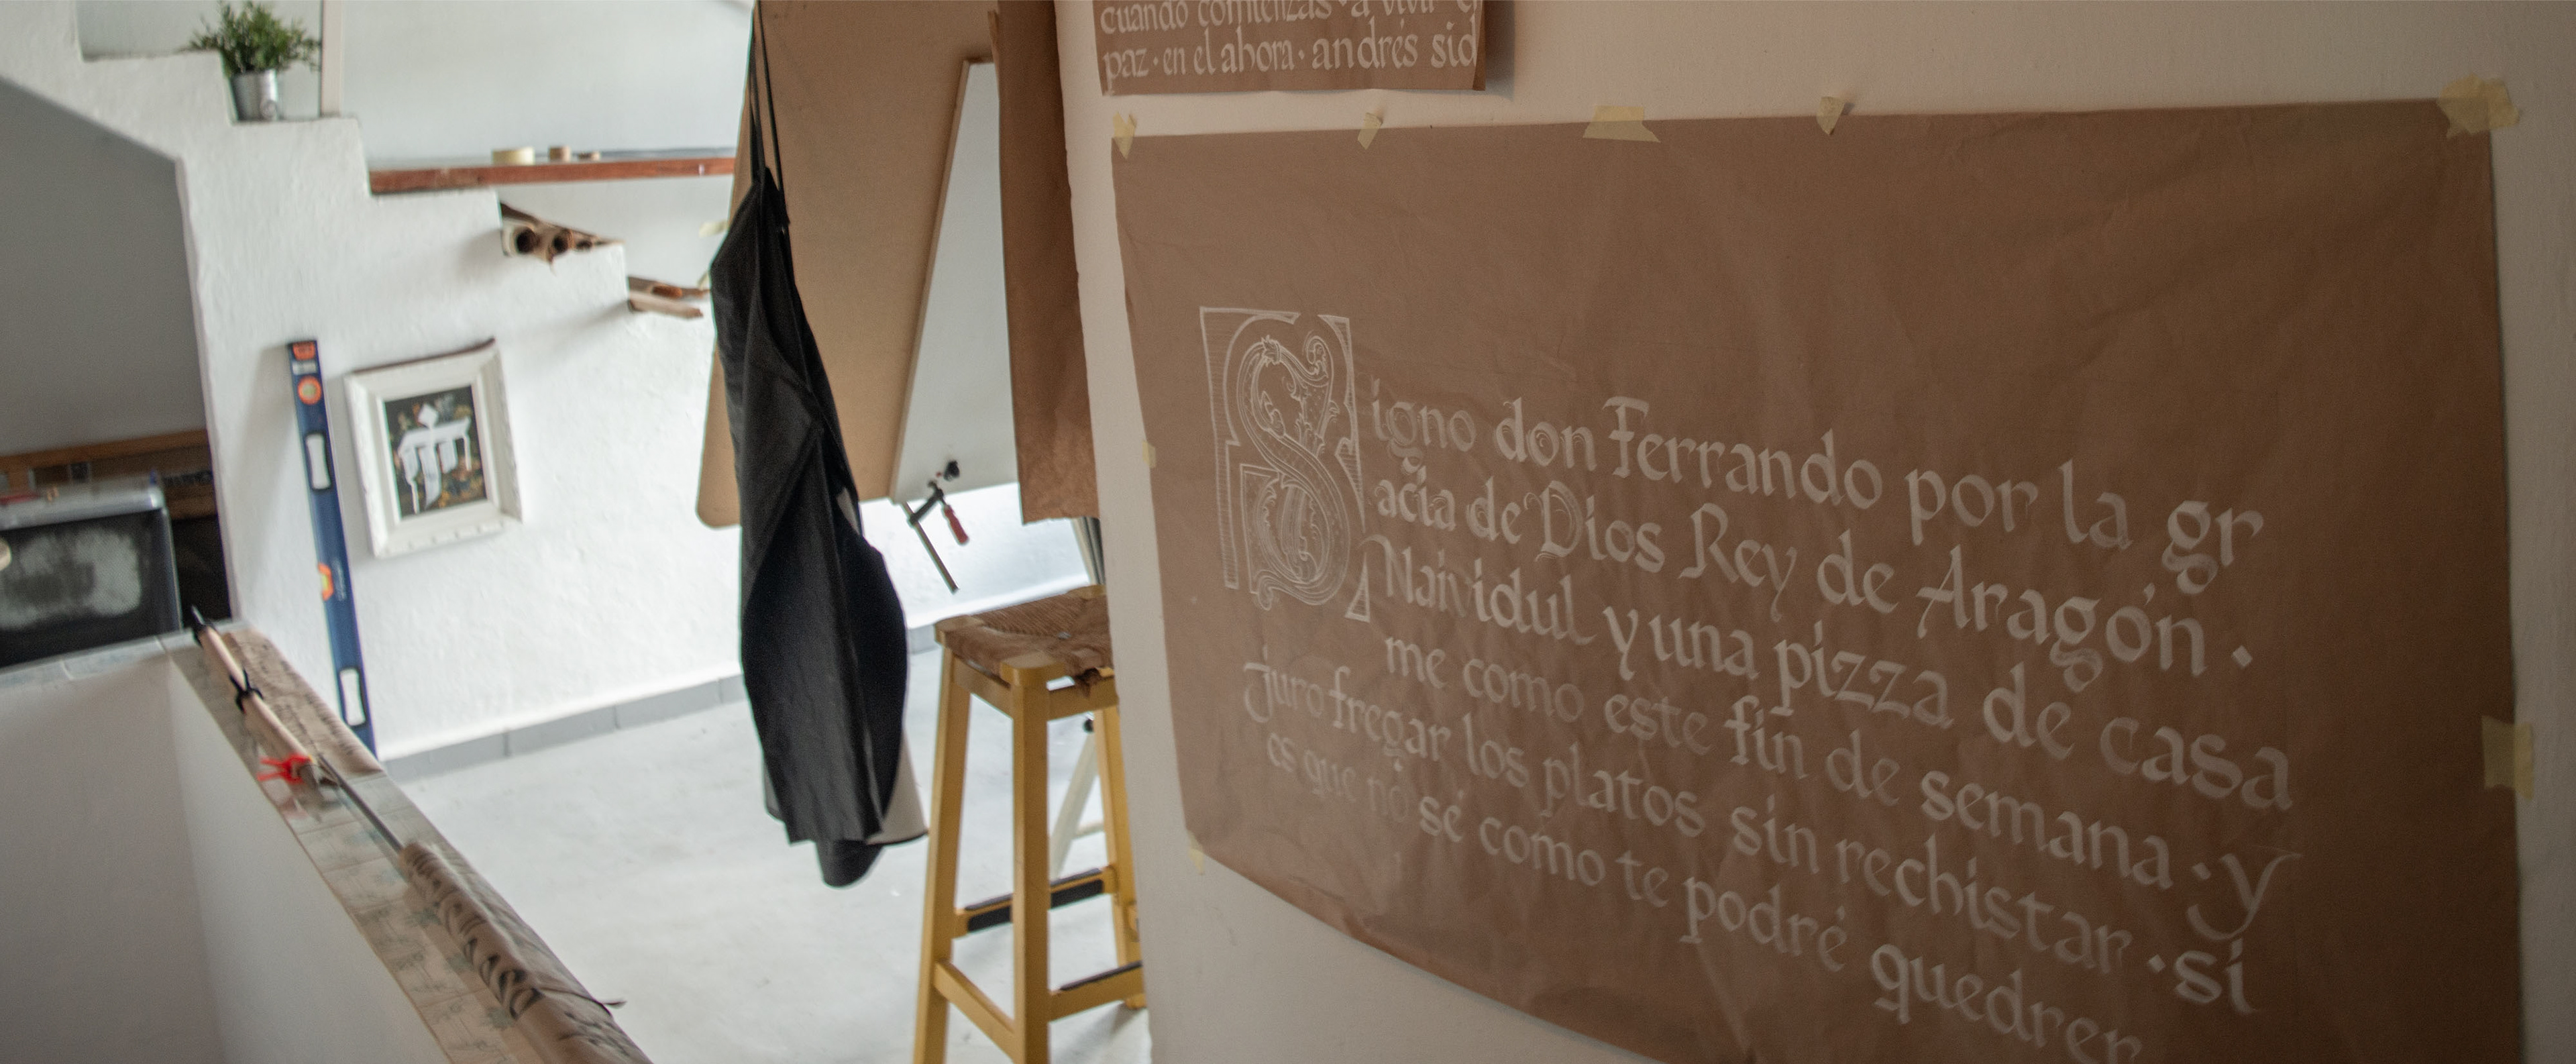 cuando comienzas · a vivir
paz · en el ahora · andrés sid
Signo don Ferrando por la gr
acia de Dios Rey de Aragón ·
Naividul y una pizza de casa
me como este fin de semana · y
juro fregar los platos sin rechistar · si
es que no sé como te podré quedrer